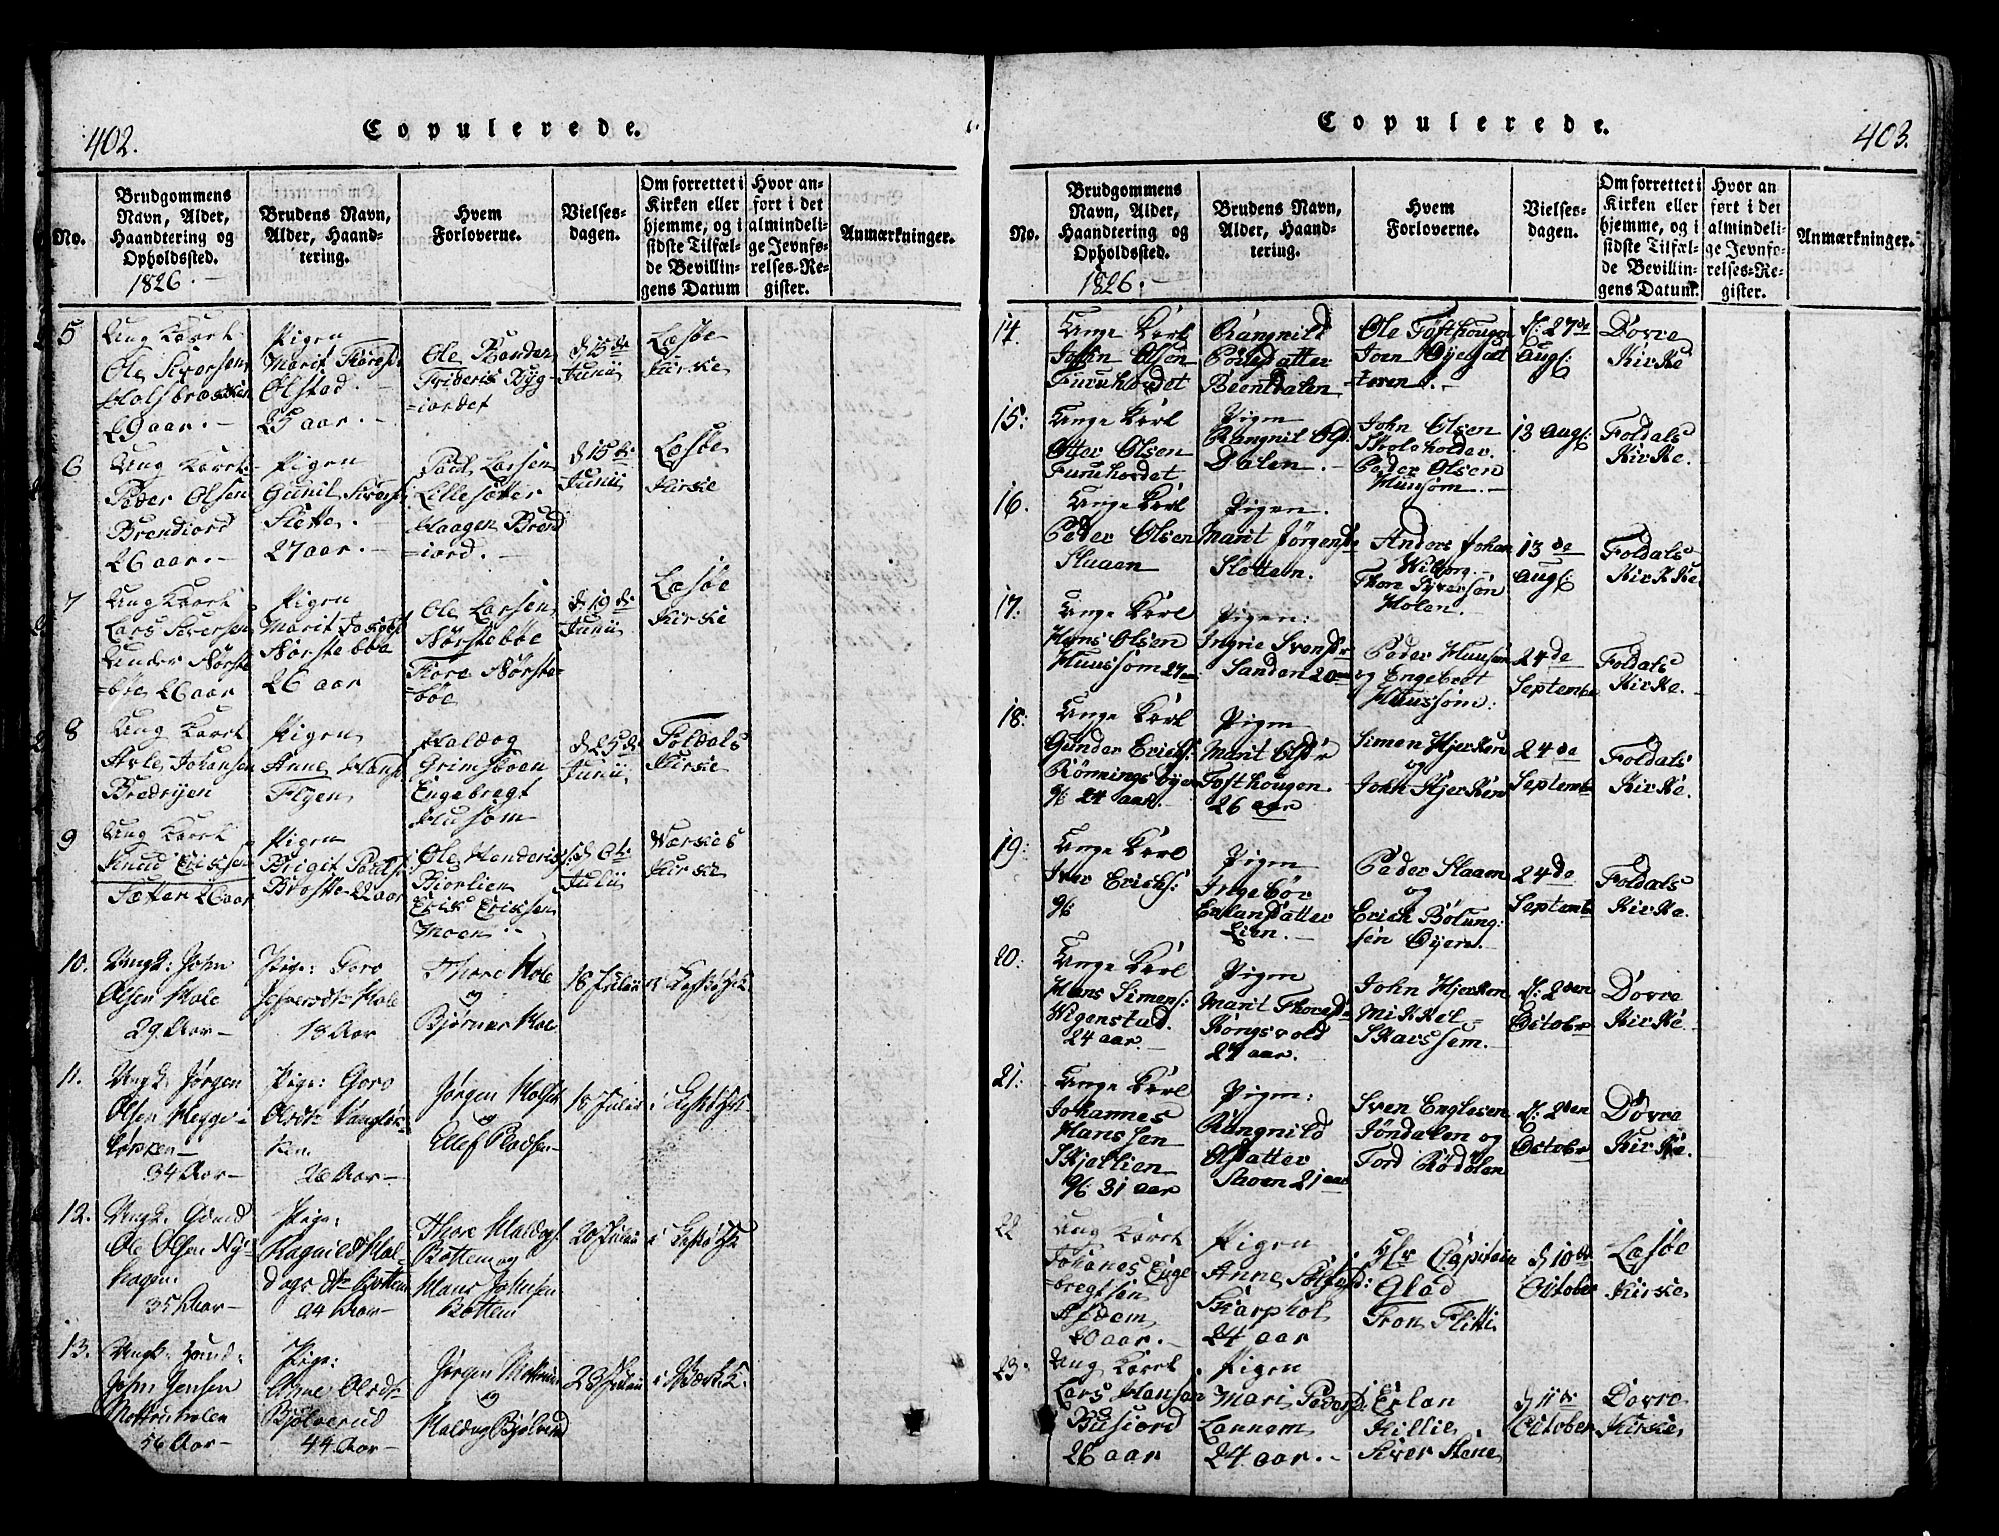 402.
Copulerede.
No.
Brudgommens
Navn, Alder,
Haandtering og
Opholdssted.
1826.
Brudens Navn,
Alder, Haand-
tering.
Hvem
Forloverne.
Vielses-
dagen.
Om forrettet i
Kirken eller
hjemme, og i
sidste Tilfæl-
de Bevillin-
gens Datum
Hvor an-
ført i det
almindeli-
ge Jevnfø-
relses-Re-
gister.
Anmærkninger.
5
Ung Karl
Ole Siversen
29 aar.
Pigen
Marit
Ølstad
25 aar.
Ole
Frideric Byg-
=iordet
d 15de
Junii
Læsøe
Kirke
6
Ung Karl
Peder Olsen
Brendiord
26 aar.
Pigen
Gunil Siversd
Slette.
27 aar.
Poul Larsen
Lillesætter
Haagen Brend
=iord.
d 15de
Junii
Læsøe
Kirke
7
Ung Karl
Lars Siversen
Under Nørste
=bøe 26 aar
Pigen
Marit Jacobsd
Nørstebøe
26 aar
Ole Larsen
Nørstebøe
Tore Nørste-
bøe
d 19de
Junii
Læsøe
Kirke
8
Ung Karl
Johansen
Pigen
Anne Hansd
Flyen
Haldog
Grimsboen
Engebregt
Husom
d 25de
Junii
Foldals
Kirke
9
Ung Karl
Knud Ericksen
Sætter 26 aar
Pigen
Brigit Poulsd
Broste 22 aar
Ole Henderics:
Biorlien
Erik Eriksen
Moen.
d 6te
Julii
Værkes
Kirke
10.
Ungk: John
Olsen Hole
29 Aar
Pige: Goro
Hole
18 Aar
Thore Hole
og
Bjørner Hol
18 Julii
11.
Ungk. Jørgen
Olsen
34 Aar
Pige: Goro
Olsdtr
ken.
26 Aar
Jørgen
og
Ellef
18 Julii
12.
Ungk.
Ole Olsen Ny-
hagen
35 Aar
Pige:
Ragnild Hal-
dogs dtr Bottem
24 Aar
Thore Haldogs
Bottem og
Hans Johnsen
Bottem
20 Julii
13.
Ungk.
John Jensen
56 Aar
Pige:
Olsdtr
Bjølverud
44 Aar
Jørgen
og
Haldog Bjølverud
23 Julii
403.
Copulerede.
No.
Brudgommens
Navn, Alder,
Haandtering og
Opholdssted.
1826.
Brudens Navn,
Alder, Haand-
tering.
Hvem
Forloverne.
Vielses-
dagen.
Om forrettet i
Kirken eller
hjemme, og i
sidste Tilfæl-
de Bevillin-
gens Datum.
Hvor an
ført i det
almindeli-
ge Jevnfø-
relses-Re-
gister.
Anmærkninger.
14.
Unge Karl
John Olsen
Furuhovdet
Rangnild
Beentdalen
Ole Tofthougen
Joen
d: 27de
Augs:
Dovre
Kirke
15:
Unge Karl
Otter Olsen
Furuhovdet
Pigen
Rangnil Ols:
Dalen.
John Olsen
Skoleholder.
Peder Olsen
Huusom.
13 Augs:
Foldals
Kirke.
16.
Unge Karl
Peder Olsen
Slaaen
Pigen.
Marit Jørgensdr
Slottem.
Anders Johan
Wiborg.
Thore Syversøn
Holen.
13de
Augs:
Foldals
Kirke
17.
Unge Karl
Hans Olsen
Huussom 27 aar
Pigen:
Ingrie Svensdr
Sanden 20 aar
Peder Huusom
og Engebret
Huussom:
24de
September
Foldals
Kirke.
18:
Unge Karl
Gunder Erichs:
Rønningsøyen
24 aar.
Pigen
Marit Olsdr
Tofthougen.
26 aar
Simen Hjerken
og
John Hjerken
24de
Septembr
Foldals
Kirke.
19:
Unge Karl
Iver Erichs:
Pigen
Ingebør
Erlandatter
Lien.
Peder Slaaen
og
Erich Botung:
sen Øyen.
24de
Septembr
Foldals
Kirke.
20:
Unge Karl
Hans Simens:
Wigenstad.
24 aar.
Pigen
Marit Thoresdr
Kongsvold
27 aar.
John Hjerken
Mikkel
Skavssem.
d: 2den
Octobr
Dovre
Kirke.
21:
Unge Karl
Johannes
Hanssen
Skjellien
31 aar
Pigen:
Rangnild
Olsdatter
Skoen 21 aar
Sven Englesen
Jøndalen og
Tord Rødølen
d: 2den
Octobr
Dovre
Kirke.
22
Ung Karl
Johanes Enge
=bregtsen
20 aar.
Pigen
Anne
Skarphol
24 aar
Hr Capitain
Glad
Tron Flitti
d 10de
October
Læsøe
Kirke
23.
Ung Karl
Lars Hansen
Busiord
26 aar
Pigen
Mari Pedersd:
Lannem
24 aar.
Erlan
Killie
Siver Stene
d 11te
October
Dovre
Kirke